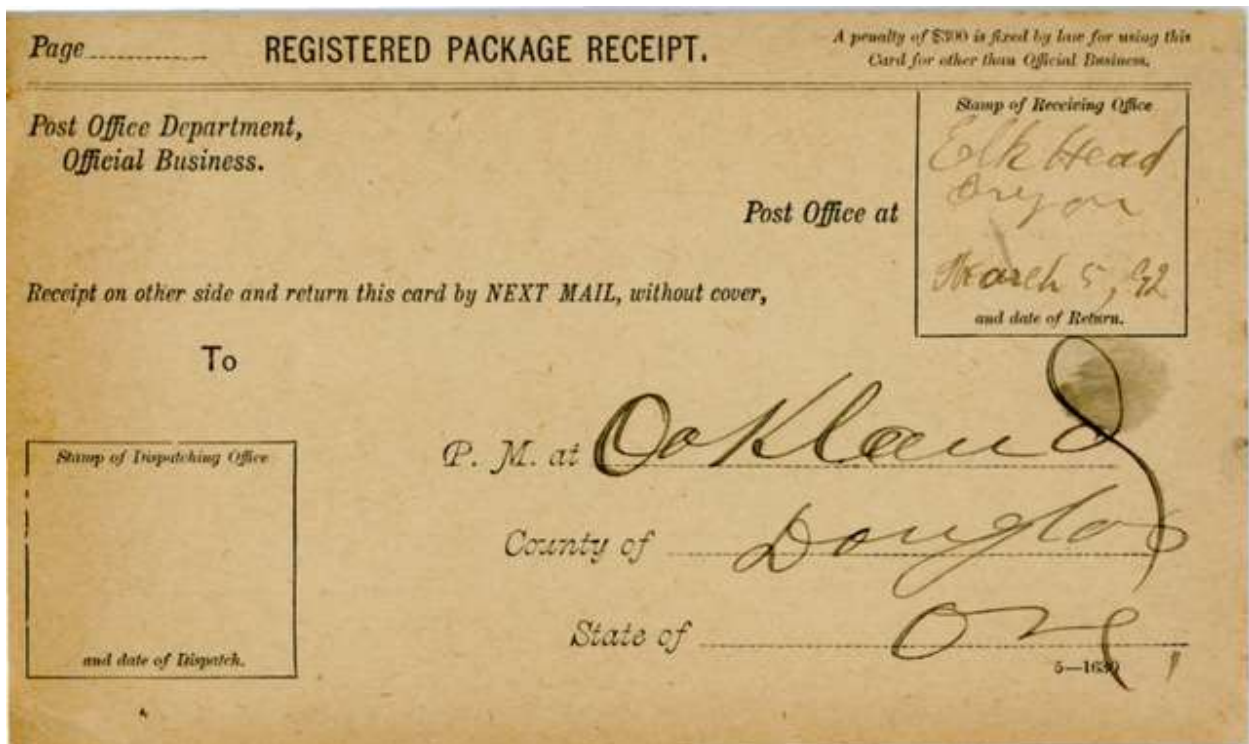 Page
REGISTERED PACKAGE RECEIPT.
A penalty of $300 is fixed by law for using this
Card for other than Official Business.
Post Office Department,
Official Business.
Stamp of Receiving Office
Elk Head
Oregon
March 5, 92
and date of Return.
Post Office at
Receipt on other side and return this card by NEXT MAIL, without cover,
To
Stamp of Dispatching Office
and date of Dispatch.
P. M. at Oakland
County of Douglas
State of Ore
5—1630